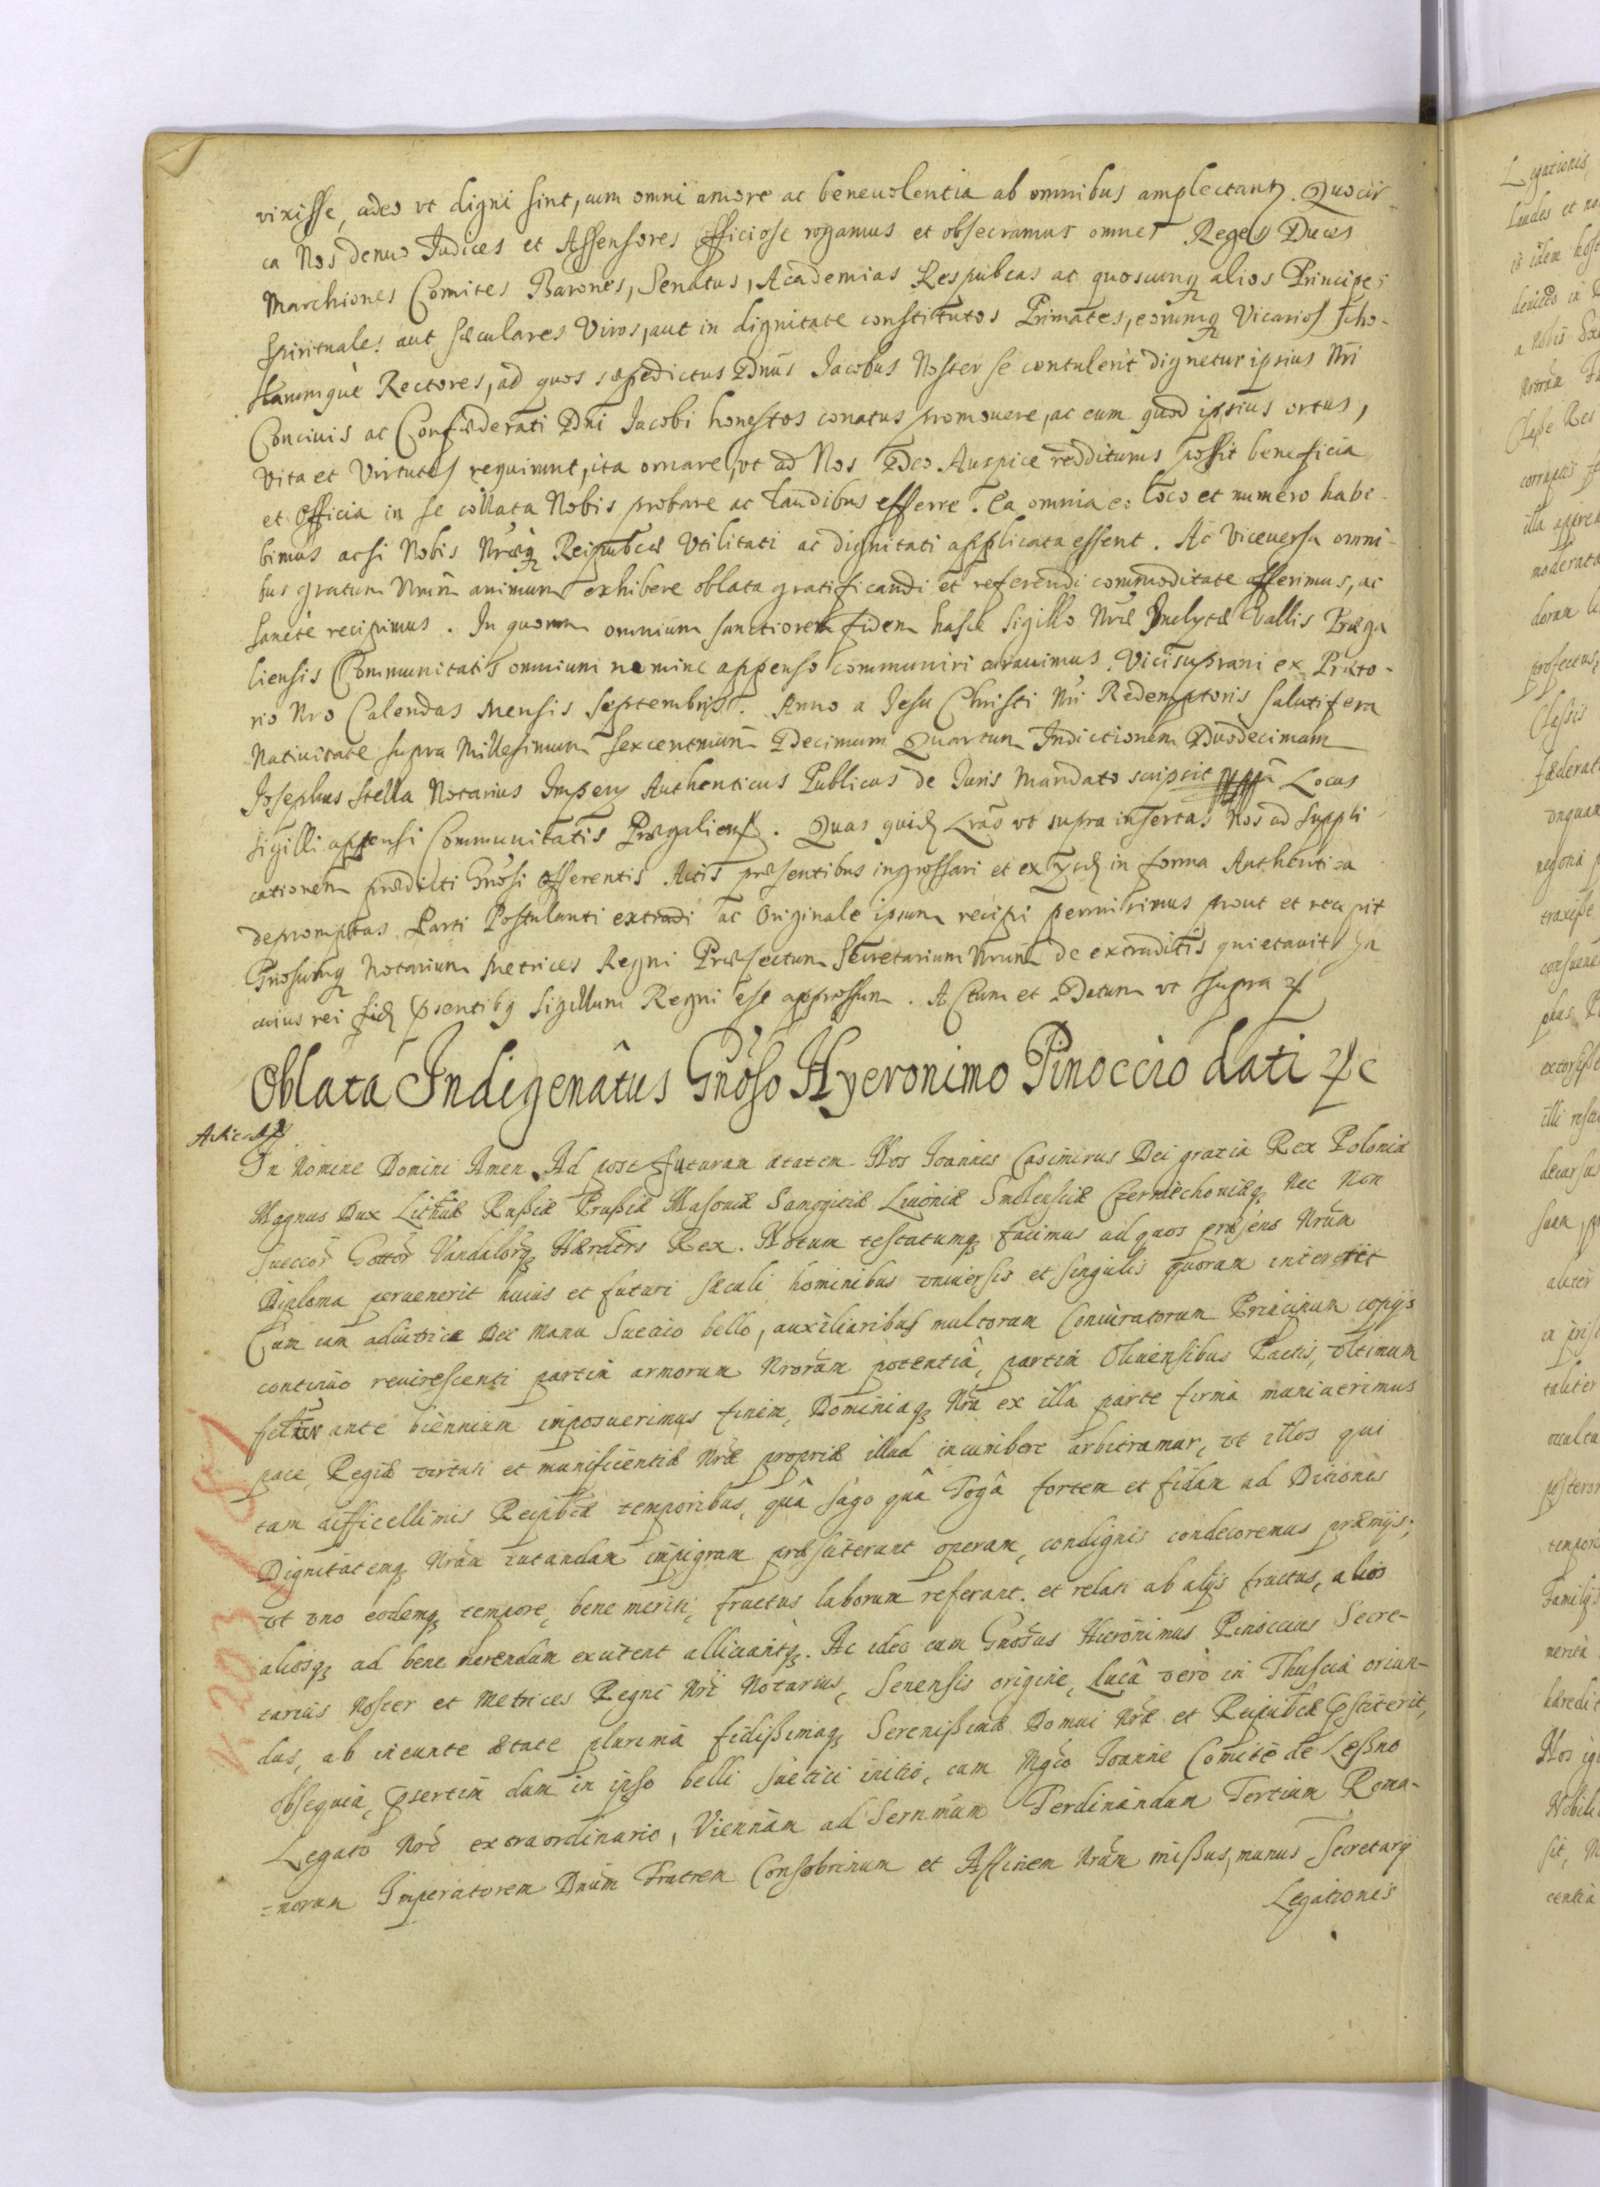 vixisse, adeo vt digni sint, cum omni amore ac beneuolentia ab omnibus amplectant. Quocir-
ca Nos denuo Judices et Assensores officiose rogamus et obsecramus omnes Reges Duces
Marchiones Comites Barones, Senatus, Academias Respubcas ac quoscunq alios Principes
Spirituales aut sæculares Viros, aut in dignitate constitutos Primates, eorumq Vicarios scho-
larumque Rectores, ad quos sæpedictus Dnus Jacobus Noster se contulerit dignetur ipsius Nri
Conciuis ac Confæderati Dni Jacobi honestos conatus promouere, ac eum quod ipsius ortus,
Vita et Virtutes requirunt, ita ornare, vt ad Nos Deo Auspice rediturus possit beneficia
et Officia in se collata Nobis probare ac laudibus efferre. Ea omnia eo loco et numero habe-
bimus acsi Nobis Nræq Reipubcæ Vtilitati ac dignitati applicata essent. Ac Viceuersa omni-
bus gratum Nrum animum exhibere oblata gratificandi et referendi commoditate offerimus, ac
sancte recipimus. In quorum omnium sanctiorem fidem hasce Sigillo Nræ Inclytæ Vallis Præga
liensis Communitatis omnium nomine appenso communiri curauimus. Vicisuprani ex Præto-
rio Nro Calendas Mensis Septembris. Anno a Jesu Christi Nri Redemptoris salutifera
Natiuitate supra Millesimum sexcentmum Decimum Quartum Indictionem Duodecimam
Josephus Stella Notarius Impery Authenticus Publicus de Juris Mandato scripsit Locus
Sigilli appensi Communitatis Prægaliens. Quas quid Lras vt supra insertas Nos ad suppli
cationem prædicti Gnosi offerentis Actis præsentibus ingrossari et ex in forma Authentica
depromptas Parti Postulanti extradi ac Originale ipsum recipi permisimus prout et recepit
Gnosumq Notarium Metrices Regni Præfectum Secretarium Nrum de extraditis quietauit. In
cuius rei fid psentibq Sigillum Regni est appressum. Actum et Datum vt supra
Oblata Indigenâtus Gnoso Hyeronimo Pinoccio dati
In Nomine Domini Amen. Ad pose futuram ætatem Nos Joannes Casimirus Dei gratia Rex Poloniæ
Magnus Dux Lithuæ Russiæ Prussiæ Masouiæ Samogitiæ Liuoniæ Smolensciæ Czerniechouiæq Nec Non
Sueccor Gottor Vandalorq Hæredtrs Rex. Notum testatumq facimus ad quos præsens Nrum
Diploma peruenerit huius et futuri sæculi hominibus vniuersis et singulis quorum interest
Cum iam adiutrice Dei Manu Suecico bello, auxiliaribus multorum Coniuratorum Principum copijs
continuo reuirescenti partim armorum Nrorum potentiâ, partim Oliuensibus Pactis, vltimum
ante biennium imposuerimus finem, Dominiaq Nra ex illa parte firma muniuerimus
pace, Regiæ virtuti et munificentiæ Nræ propriæ illud incumbere arbitramur, vt illos qui
tam difficillimis Reipubcæ temporibus, quâ sago quâ Togâ fortem et fidam ad Ditiones
Dignitatemq Nram tutandam impigram præstiterunt operam, condignis condecoremus præmijs;
vt vno eodemq tempore, bene meriti, fructus laborum referant, et relati ab alijs fructus, alios
aliosq ad bene merendum excitent alliciantq. Ac ideo cum Gnosus Hieronimus Pinoccius Secre-
tarius Noster et Metrices Regni Nri Notarius, Senensis origine, Lucâ vero in Thuscia oriun-
dus, ab ineunte ætate plurima fidissimaq Serenissimæ Domui Nræ et Reipubcæ pstiterit,
obsequia, psertim dum in ipso belli Suetici initio, cum Mgco Joanne Comite de Leszno
Legato Nro extraordinario, Viennam ad Sernmum Ferdinandum Tertium Roma-
=norum Imperatorem Dnum Fratrem Consobrinum et Affinem Nrum missus, munus Secretarij
Legationis